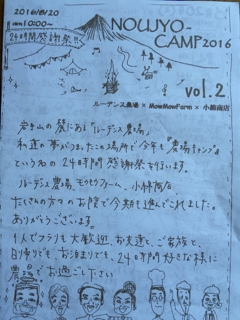 2016/8/20
am10:00~
24時間感謝祭!!
NOUJYO-
CAMP2016
vol.2
ルーデンス農場 × MowMowFarm × 小林商店
岩手山の麓にある「ルーデンス農場」
私達の夢がつまったこの場所で今年も"農場キャンプ"
という名の24時間感謝祭を行います。
ルーデンス農場、モウモウファーム、小林商店
たくさんの方々のお陰で今年も進んでこれました。
ありがとうございます。
1人でフラリも大歓迎、お友達と、ご家族と、
日帰りでも、お泊まりでも、24時間好きな様に
農場でお過ごし下さい